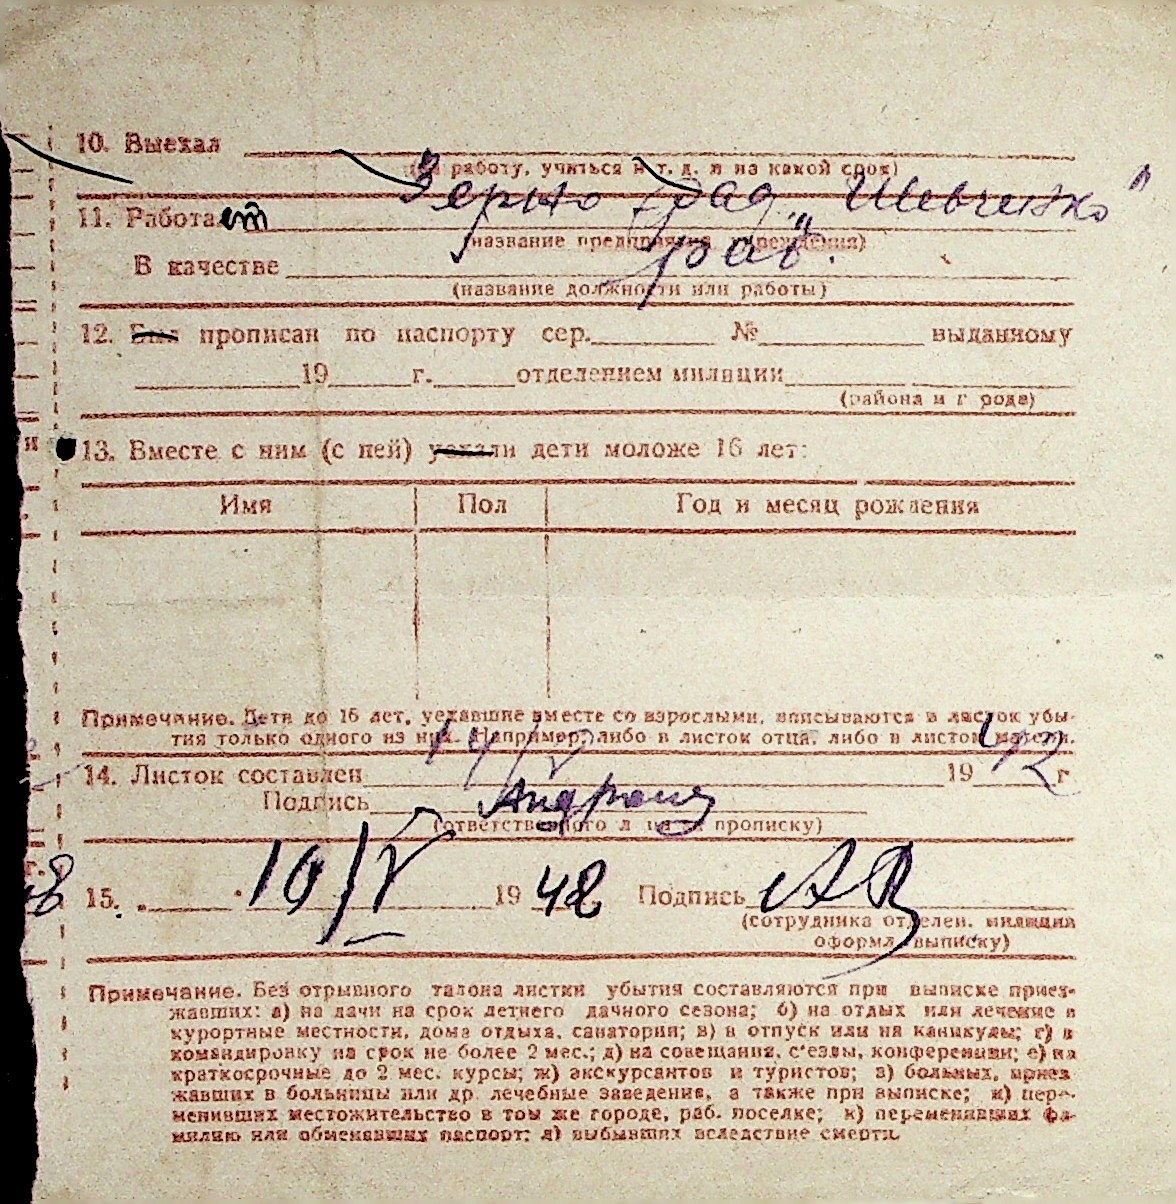 10. Выехал
(на работу, учиться и т. д. и на какой срок)
Зерно град „Шевченко"
11. Работает
(название предприятия, учреждения)
раб.
В качестве
(название должности или работы)
12. Был прописан по паспорту сер. № выданному
19 г. отделением милиции
(района и города)
13. Вместе с ним (с ней) уехали дети моложе 16 лет:
Имя Пол Год и месяц рождения
Примечание. Дети до 16 лет, уехавшие вместе со взрослыми, вписываются в листок убы-
тия только одного из них. Например, либо в листок отца, либо в листок матери.
14. Листок составлен 14/V 19 г.
Подпись
(ответственного лица за прописку)
15. 19/V 1948 Подпись
(сотрудника отделен. милиции
оформл. выписку)
Примечание. Без отрывного талона листки убытия составляются при выписке приез-
жавших: а) на дачи на срок летнего дачного сезона; б) на отдых или лечение в
курортные местности, дома отдыха, санатории; в) в отпуск или на каникулы; г) в
командировку на срок не более 2 мес.; д) на совещания, с'езды, конференции; е) на
краткосрочные до 2 мес. курсы; ж) экскурсантов и туристов; з) больных, приез-
жавших в больницы или др. лечебные заведения, а также при выписке; и) пере-
менивших местожительство в том же городе, раб. поселке; к) переменивших фа-
милию или обменявших паспорт; л) выбывших вследствие смерти.